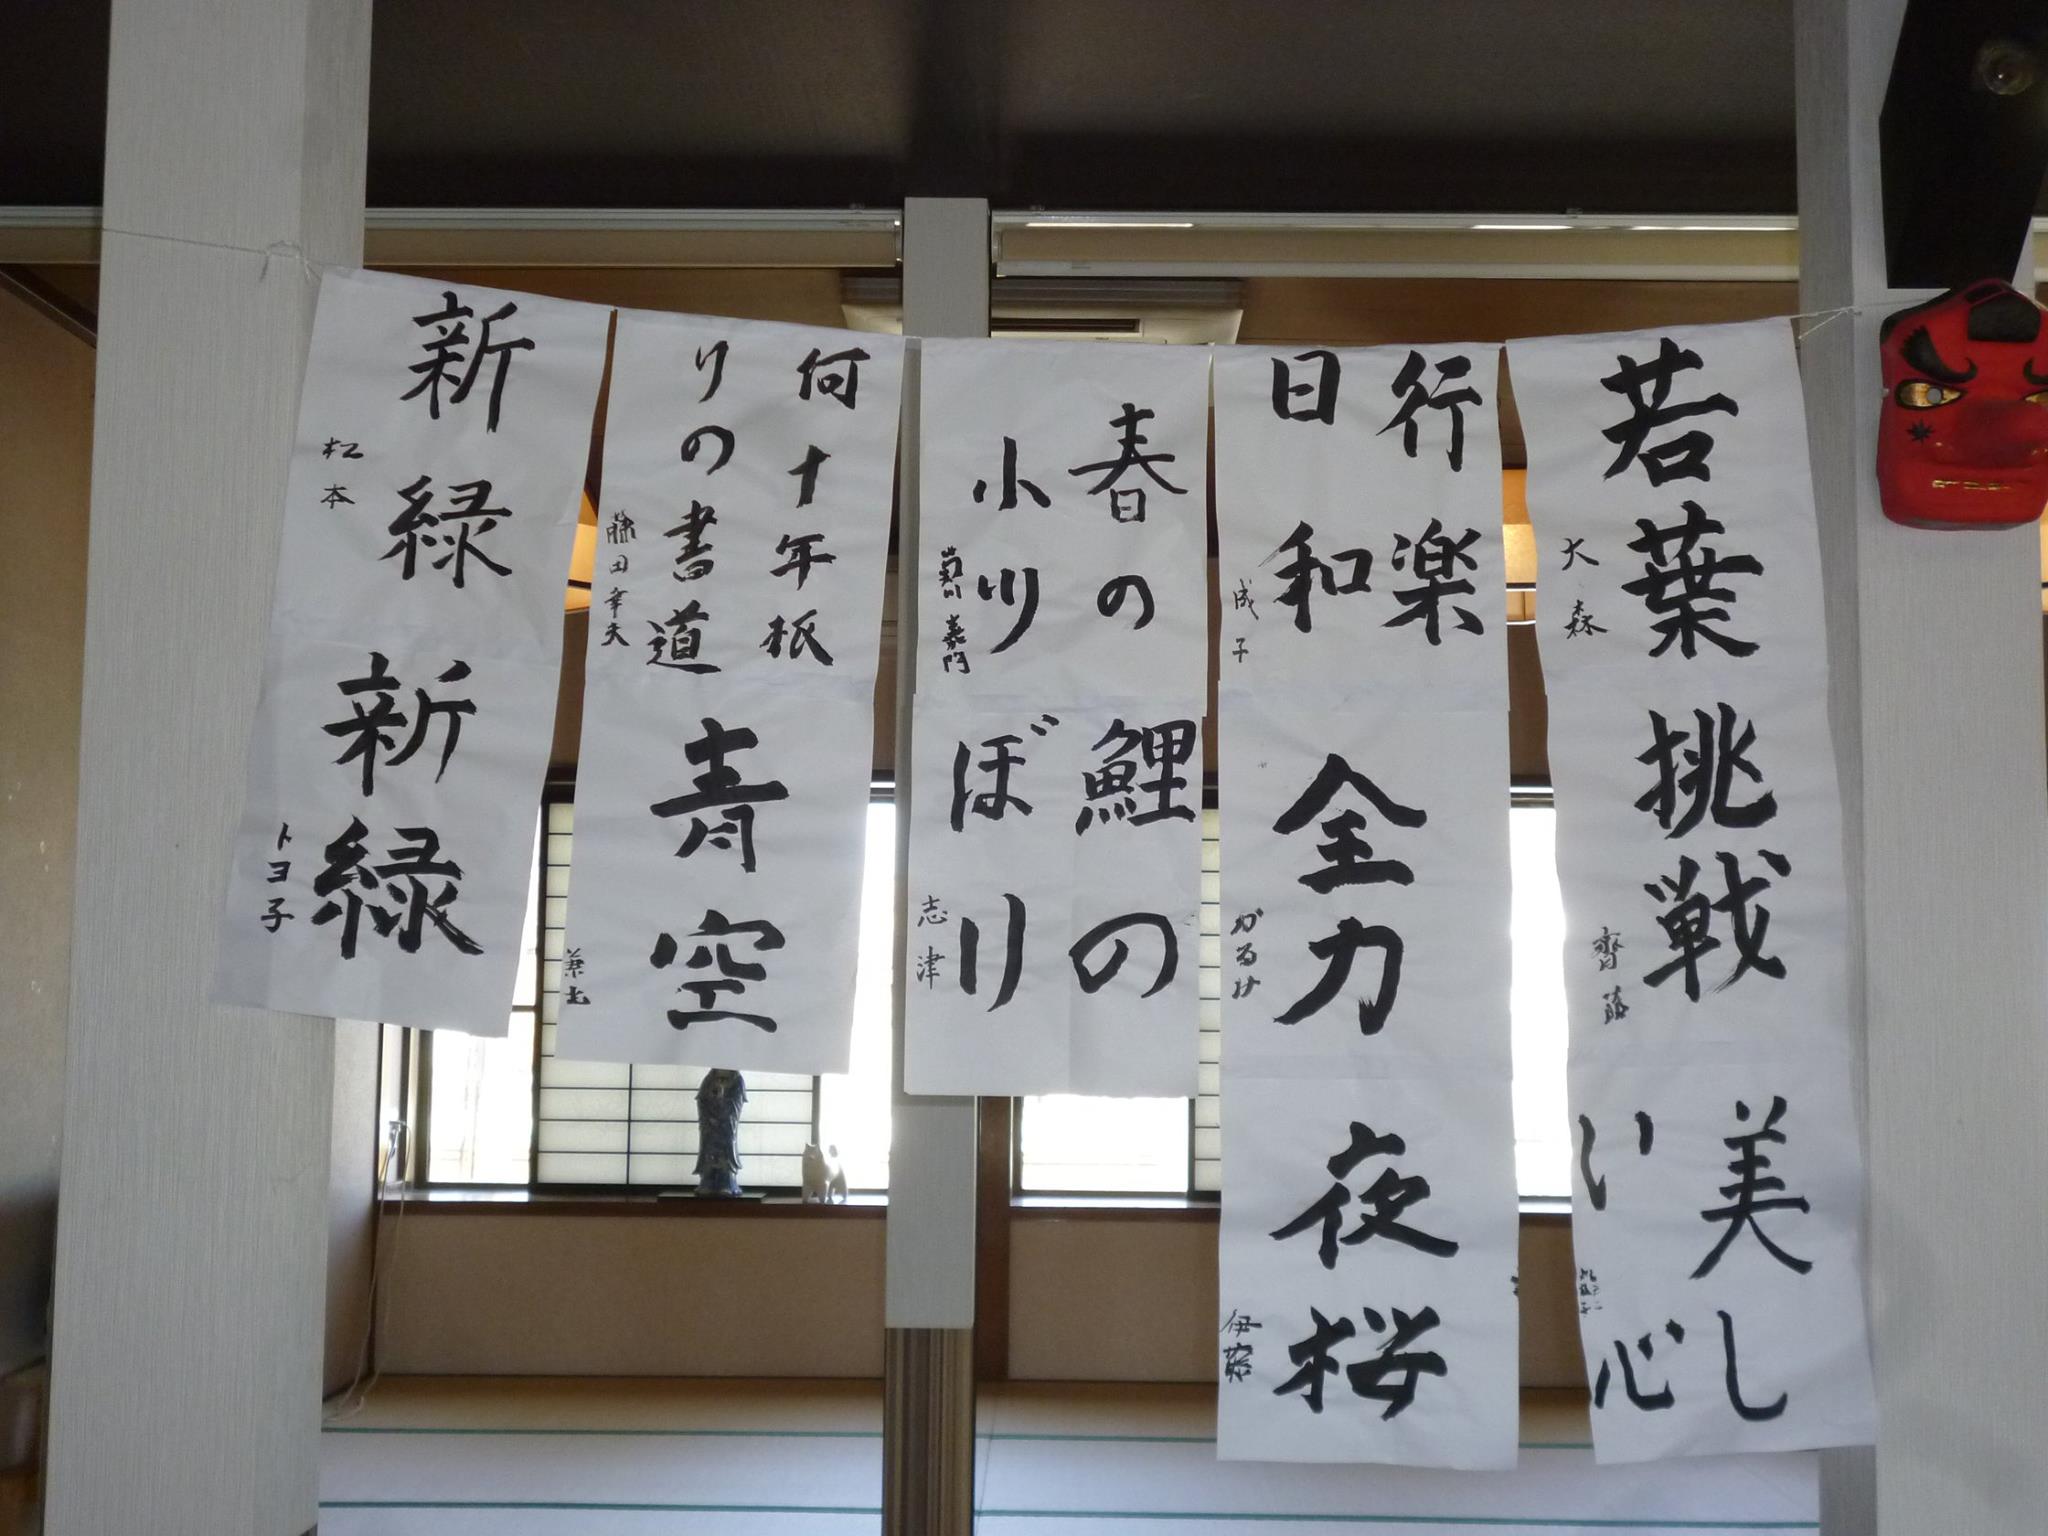 若葉
大森
挑戦
齊藤
美し
い心
行楽
日和
成子
全力
かるけ
夜桜
伊藤
春の
小川
嘉門
鯉の
ぼり
志津
何十年祇
りの書道
藤田幸夫
青空
新緑
松本
新緑
トヨ子